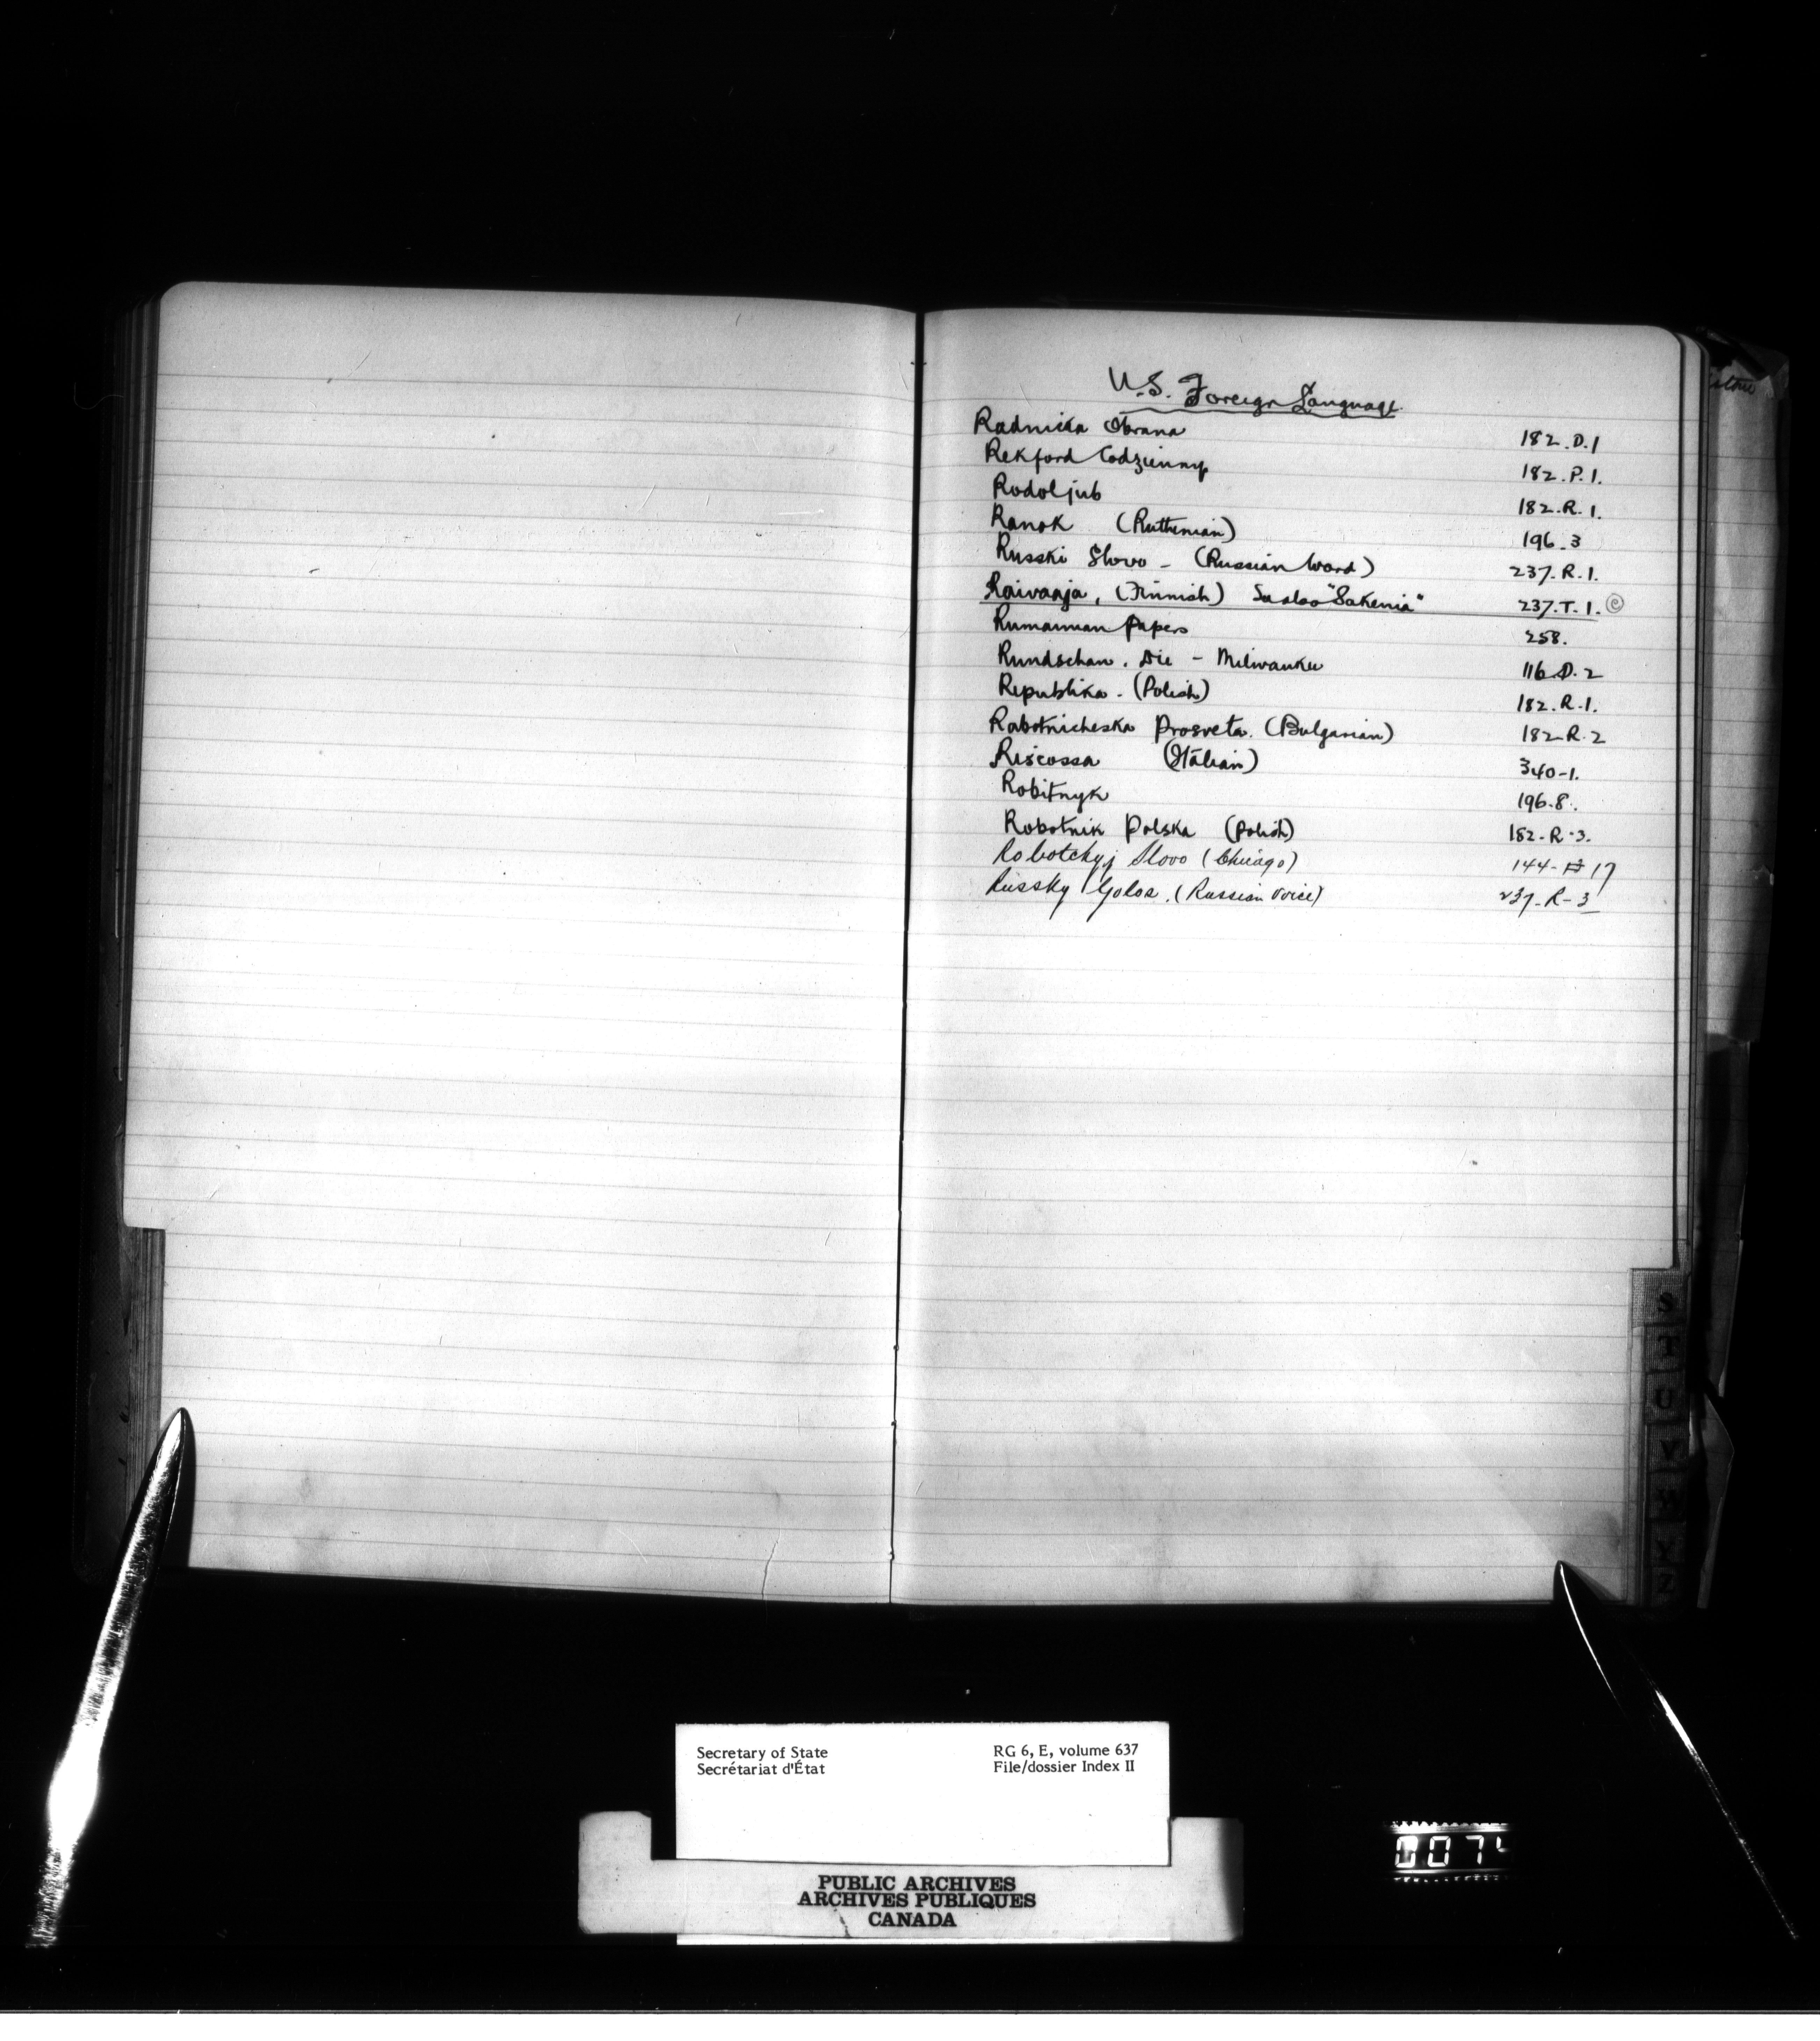 U.S. Foreign Language.
Radnicka Obrana 182.D.1
Rekford Codzienny 182.P.1.
Rodoljub 182.R.1.
Ranok (Ruthenian) 196.3
Russki Slovo - (Russian Word) 237.R.1.
Raivaaja, (Finnish) See also "Sakenia" 237.T.1. c
Rumanian Papers 258.
Rundschau. Die - Milwaukee 116.D.2
Republika. (Polish) 182.R.1.
Rabotnicheska Prosveta. (Bulgarian) 182-R.2
Riscossa (Italian) 340-1.
Robitnyk 196.8.
Robotnik Polska (Polish) 182-R-3.
Robotchyj Slovo (Chicago) 144- 17
Russky Golos. (Russian Voice) 237-R-3
S
T
U
V
W
Y
Z
Secretary of State RG 6, E, volume 637
Secrétariat d'État File/dossier Index II
PUBLIC ARCHIVES
ARCHIVES PUBLIQUES
CANADA
0074